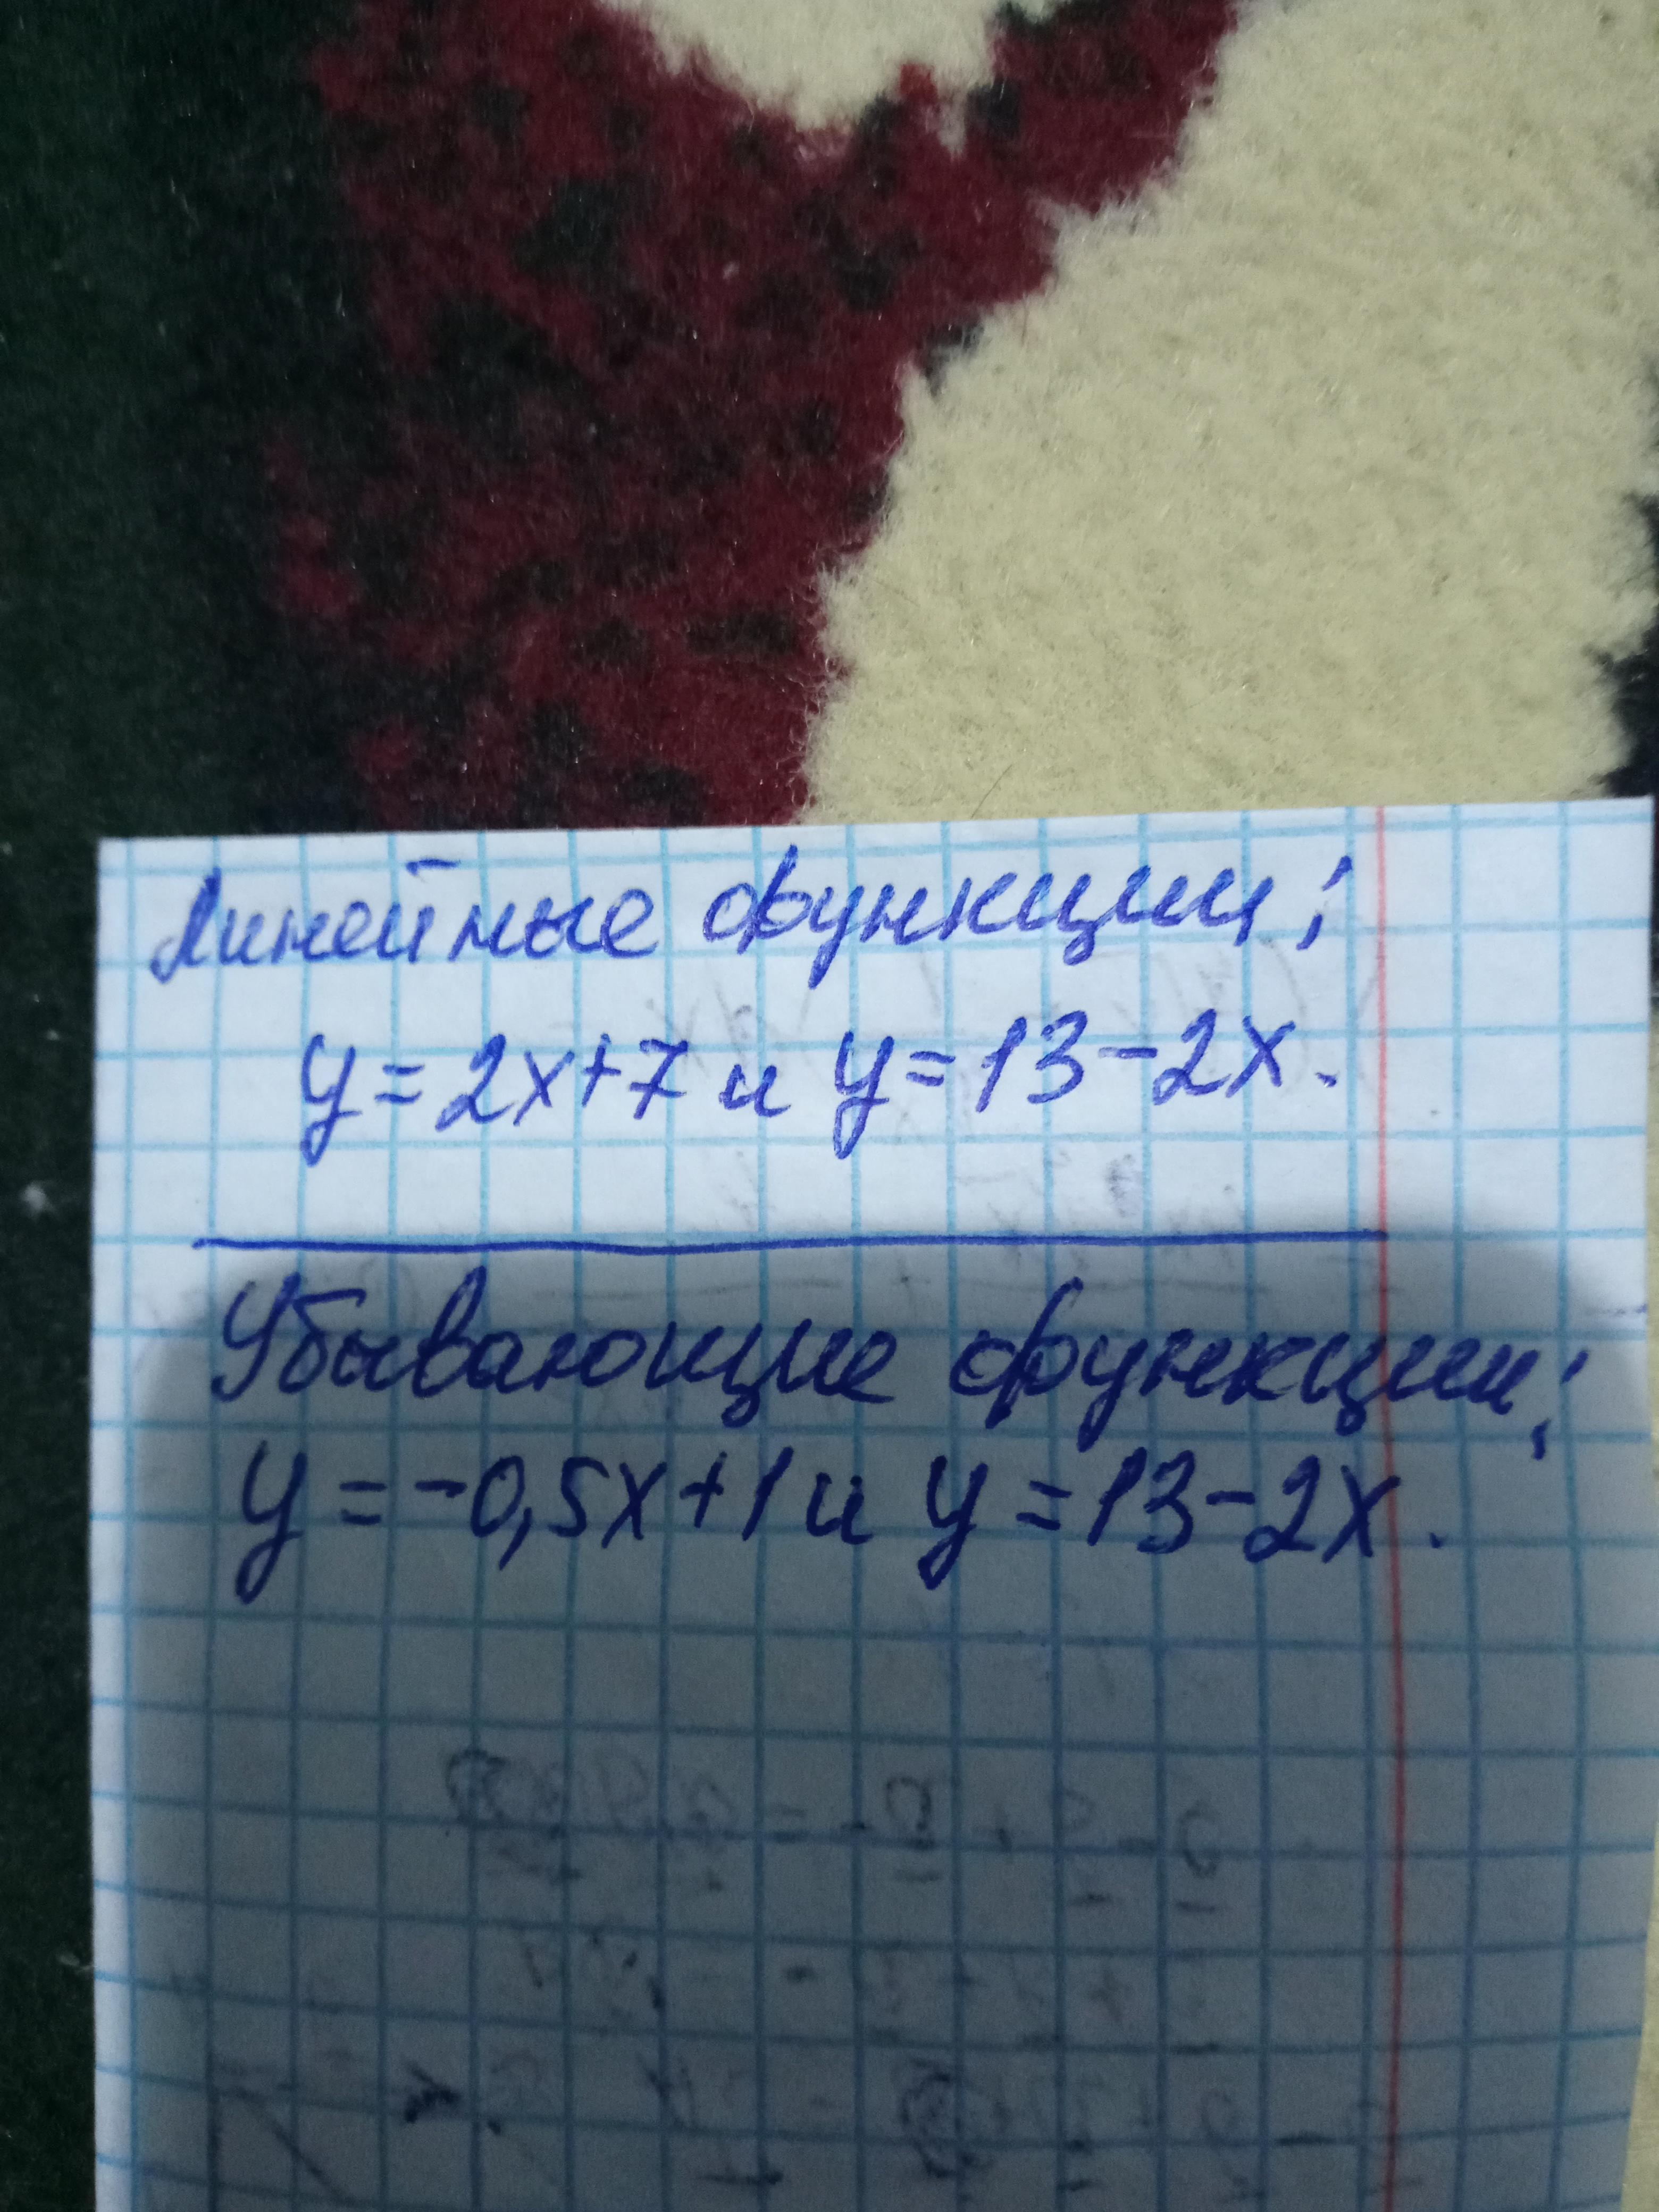 Линейные функции:
y=2x+7 и y=13-2x.
Убывающие функции:
y=-0,5x+1 и y=13-2x.